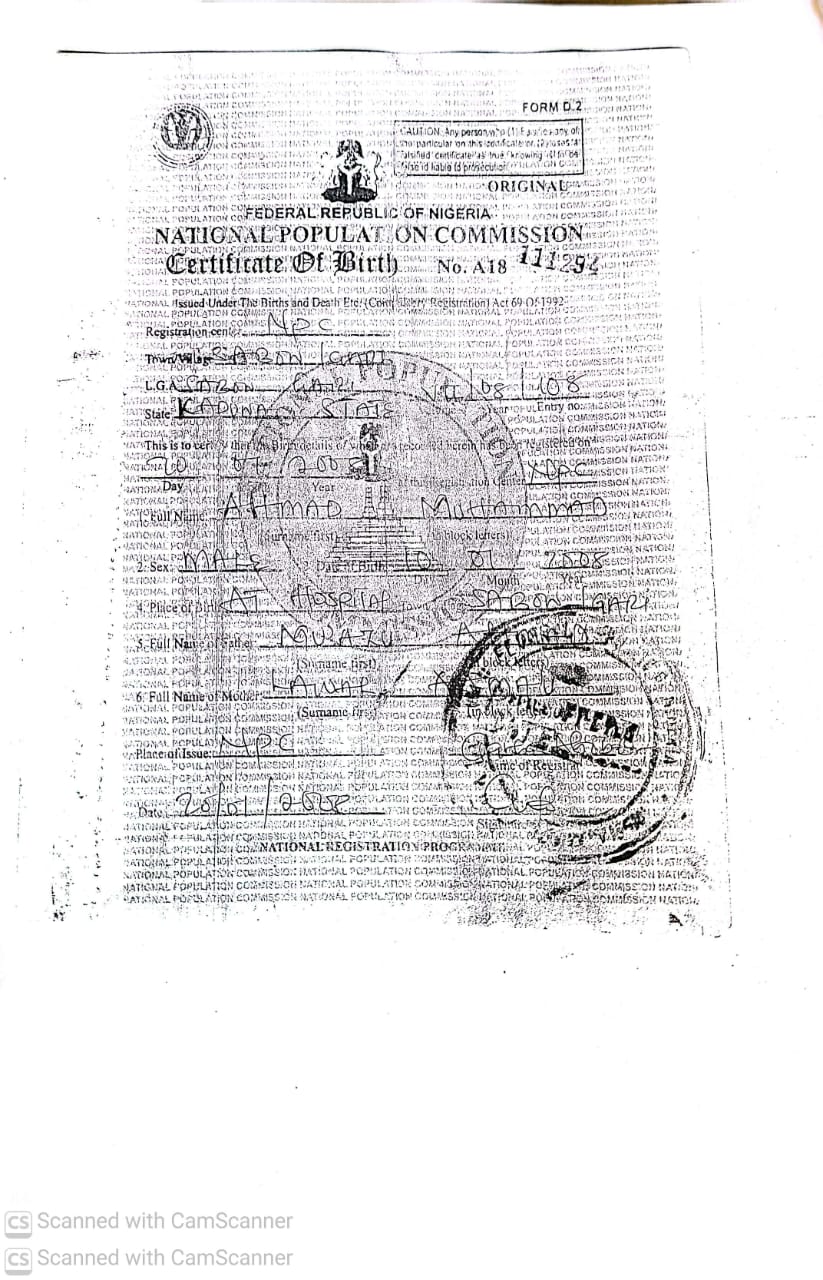 FORM D.2
CAUTION: Any person who (1) Falsifies any of
the particular on this certificate or (2) uses a
falsified certificate as true knowing it to be
false is liable to prosecution
ORIGINAL
FEDERAL REPUBLIC OF NIGERIA
NATIONAL POPULATION COMMISSION
Certificate Of Birth No. A18 111294
Issued Under The Births and Death Etc. (Compulsory Registration) Act 69 Of 1992
Registration center NPC
Town/Village SABON GARI
L.G.A. SABON GARI 08 108
State KADUNA STATE Year Entry no.
This is to certify that the Birth details of which are recorded herein has been registered on
20 01 2008 at this Registration Center NPC
Day Year
1. Full Name: AHMAD MUHAMMAD
(Surname first) (In block letters)
2. Sex: MALE 3. Date of Birth 10 01 2008
Day Month Year
4. Place of birth AT HOSPITAL SABON GARI
5. Full Name of Father
(Surname first) (In block letters)
6. Full Name of Mother: LAWAL
(Surname first) (In block letters)
Place of Issue: NPC
Name of Registrar
Date 20/01/2008
Signature
NATIONAL REGISTRATION PROGRAMME
CS Scanned with CamScanner
CS Scanned with CamScanner